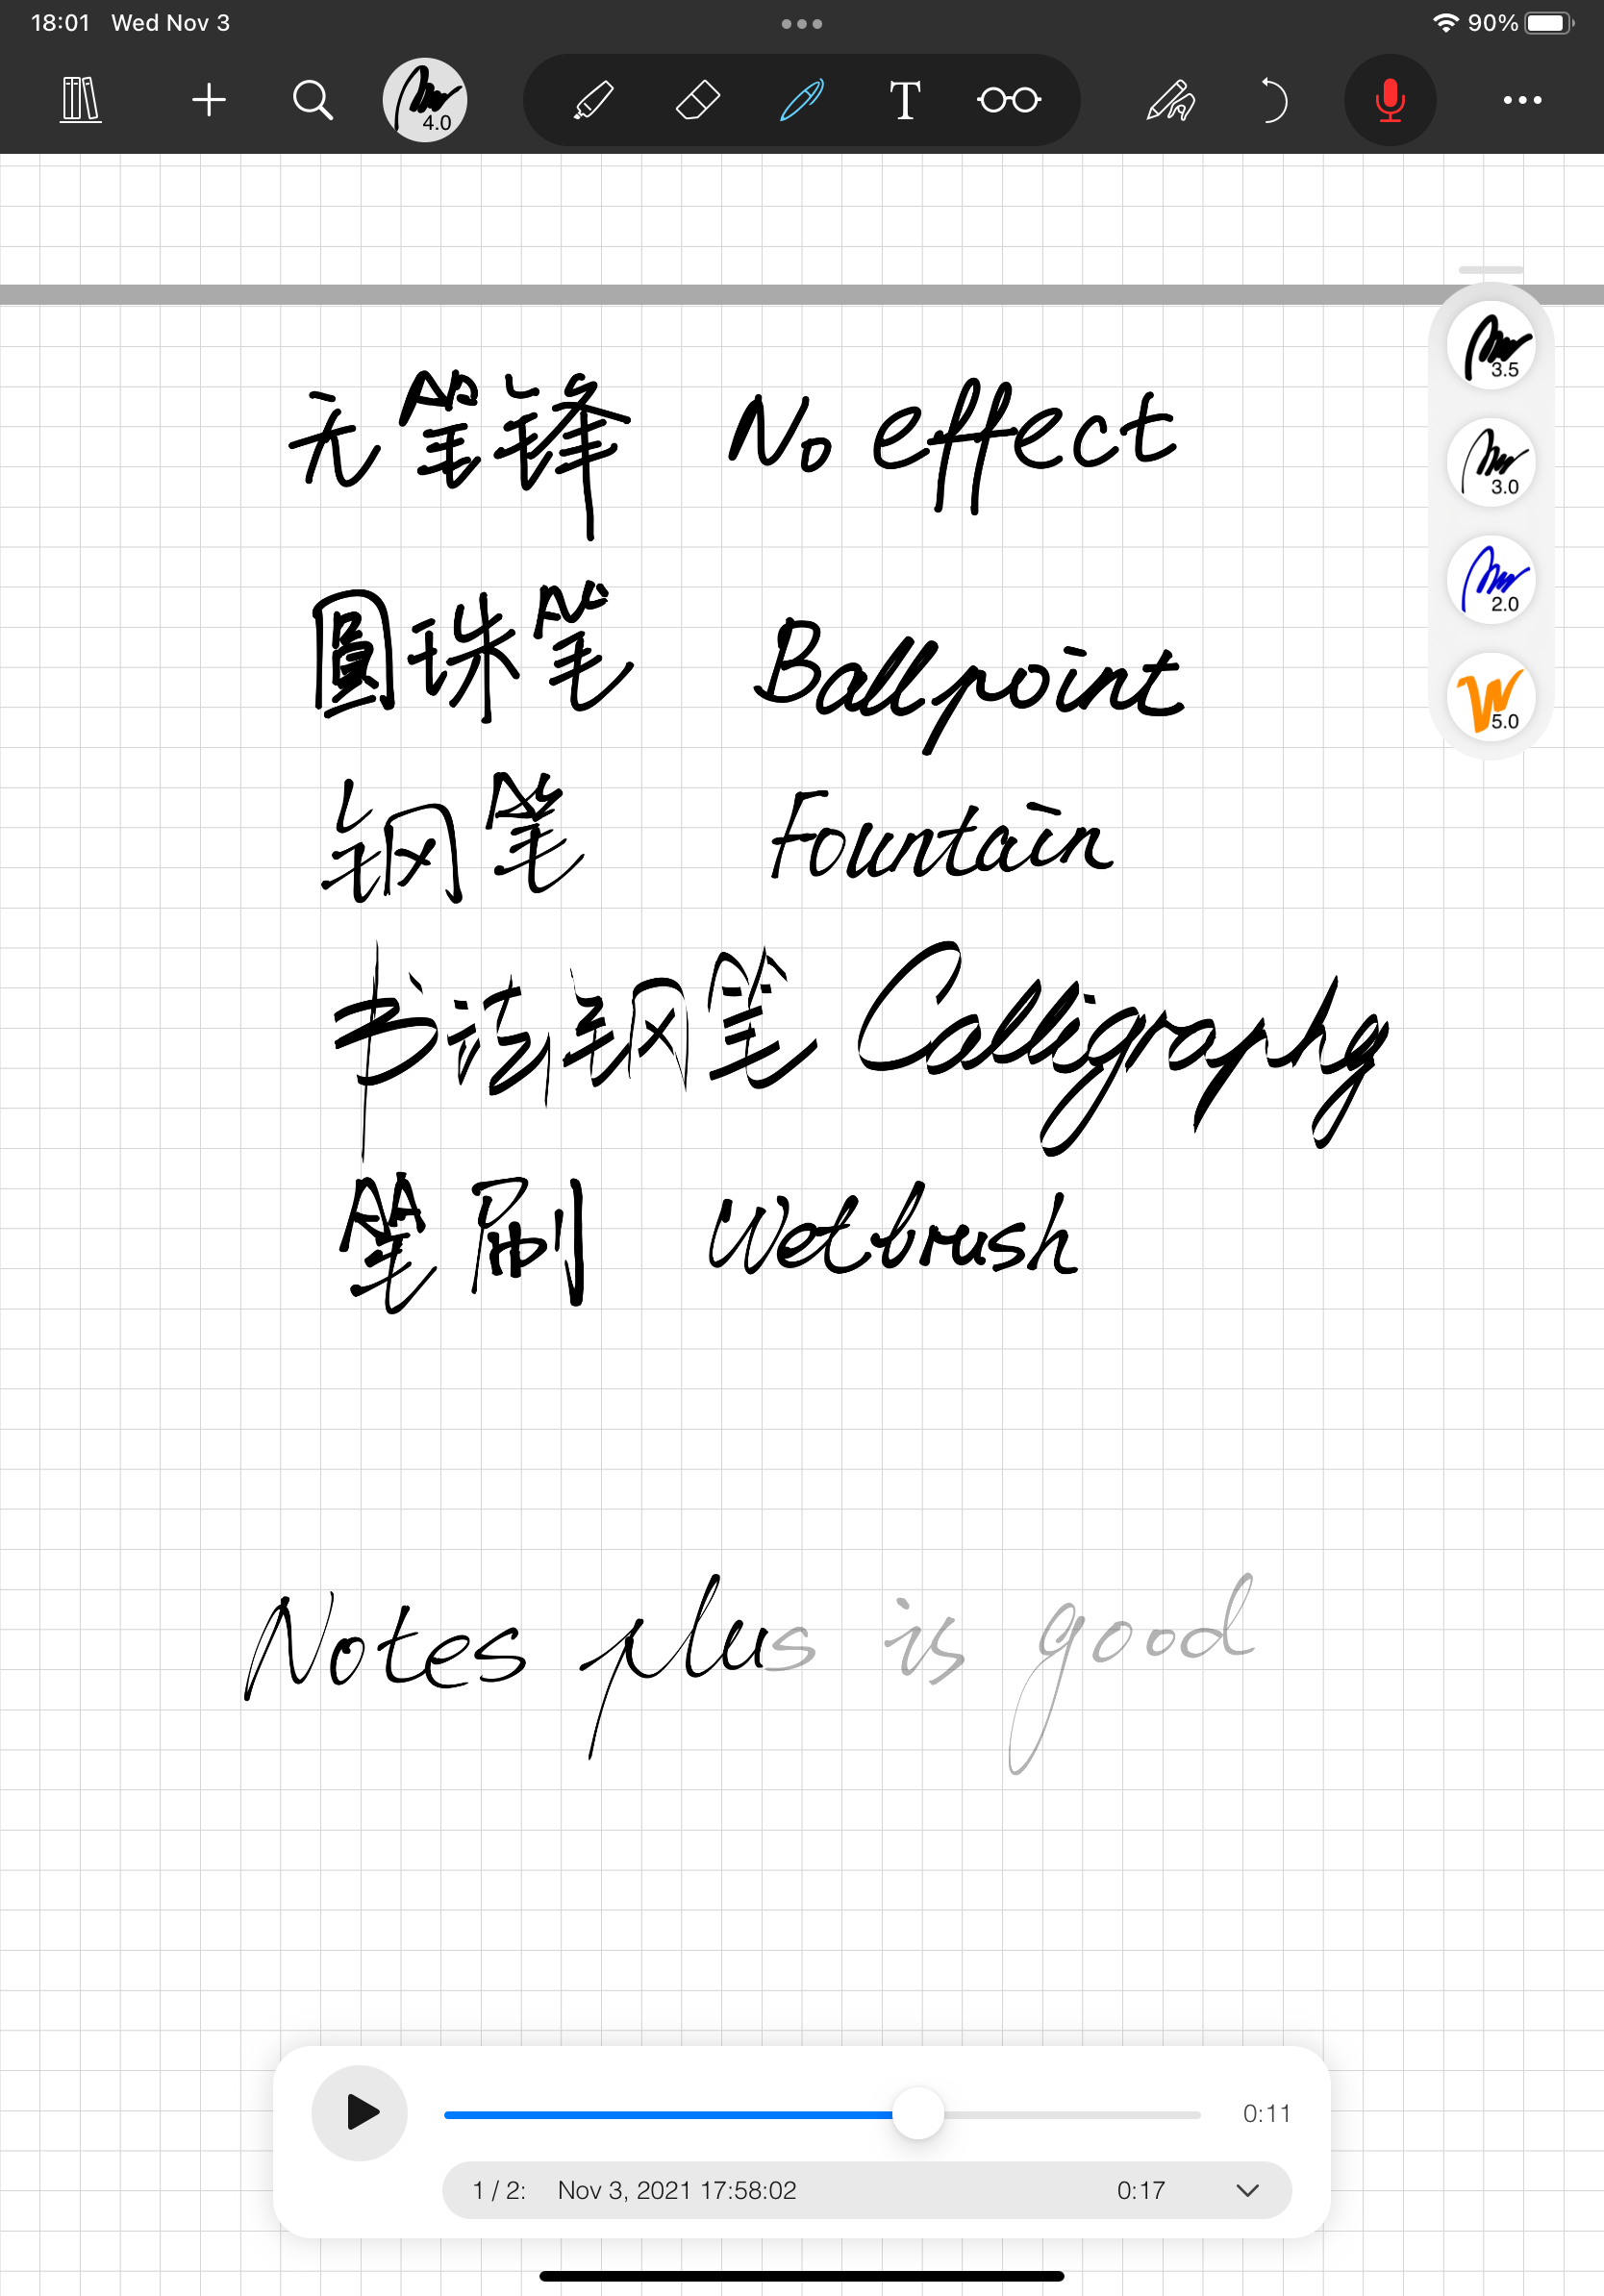 18:01 Wed Nov 3 90%
4.0 T
3.5
无笔锋 No effect
3.0
2.0
圓珠笔 Ballpoint
5.0
钢笔 Fountain
书法钢笔 Calligraphy
笔刷 Wetbrush
Notes plus is good
0:11
1 / 2: Nov 3, 2021 17:58:02 0:17